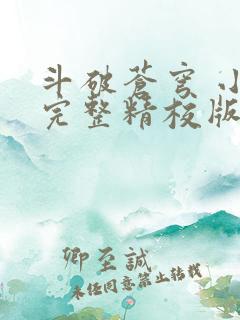 斗破苍穹 小
完整精校版
卿至誠
未经同意禁止转载